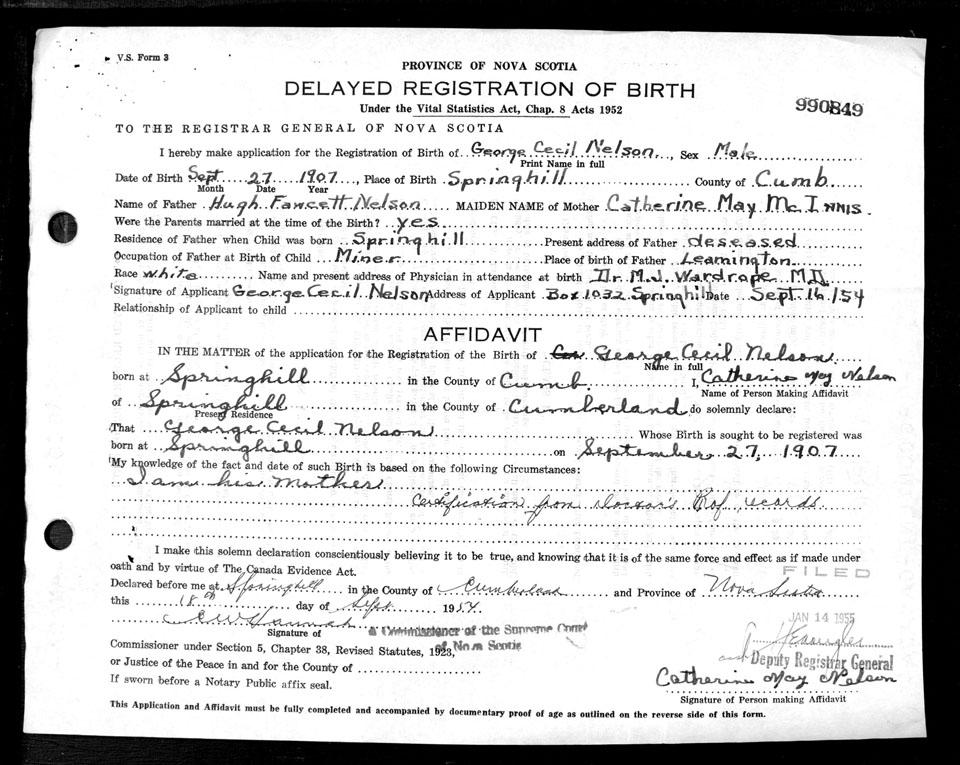 V.S. Form 3
PROVINCE OF NOVA SCOTIA
DELAYED REGISTRATION OF BIRTH
990849
Under the Vital Statistics Act, Chap. 8 Acts 1952
TO THE REGISTRAR GENERAL OF NOVA SCOTIA
I hereby make application for the Registration of Birth of George Cecil Nelson, Sex Male
Print Name in full
Date of Birth Sept 27 1907, Place of Birth Springhill County of Cumb.
Month Date Year
Name of Father Hugh Fawcett Nelson MAIDEN NAME of Mother Catherine May McInnis.
Were the Parents married at the time of the Birth? yes
Residence of Father when Child was born Springhill Present address of Father deseased
Occupation of Father at Birth of Child Miner Place of birth of Father Leamington
Race white Name and present address of Physician in attendance at birth Dr. M.J. Wardrope M.D.
Signature of Applicant George Cecil Nelson Address of Applicant Box 1032 Springhill Date Sept 16/54
Relationship of Applicant to child
AFFIDAVIT
IN THE MATTER of the application for the Registration of the Birth of George Cecil Nelson
Name in full
born at Springhill in the County of Cumb. I, Catherine May Nelson
Name of Person Making Affidavit
of Springhill in the County of Cumberland do solemnly declare:
Present Residence
That George Cecil Nelson Whose Birth is sought to be registered was
born at Springhill on September 27, 1907
My knowledge of the fact and date of such Birth is based on the following Circumstances:
I am his mother
Certification from Doctor's records
I make this solemn declaration conscientiously believing it to be true, and knowing that it is of the same force and effect as if made under
oath and by virtue of The Canada Evidence Act.
FILED
Declared before me at Springhill in the County of Cumberland and Province of Nova Scotia
this 18th day of Sept 1954.
JAN 14 1955
Signature of
a Commissioner of the Supreme Court
of Nova Scotia
Commissioner under Section 5, Chapter 38, Revised Statutes, 1923,
Deputy Registrar General
or Justice of the Peace in and for the County of
Catherine May Nelson
If sworn before a Notary Public affix seal.
Signature of Person making Affidavit
This Application and Affidavit must be fully completed and accompanied by documentary proof of age as outlined on the reverse side of this form.